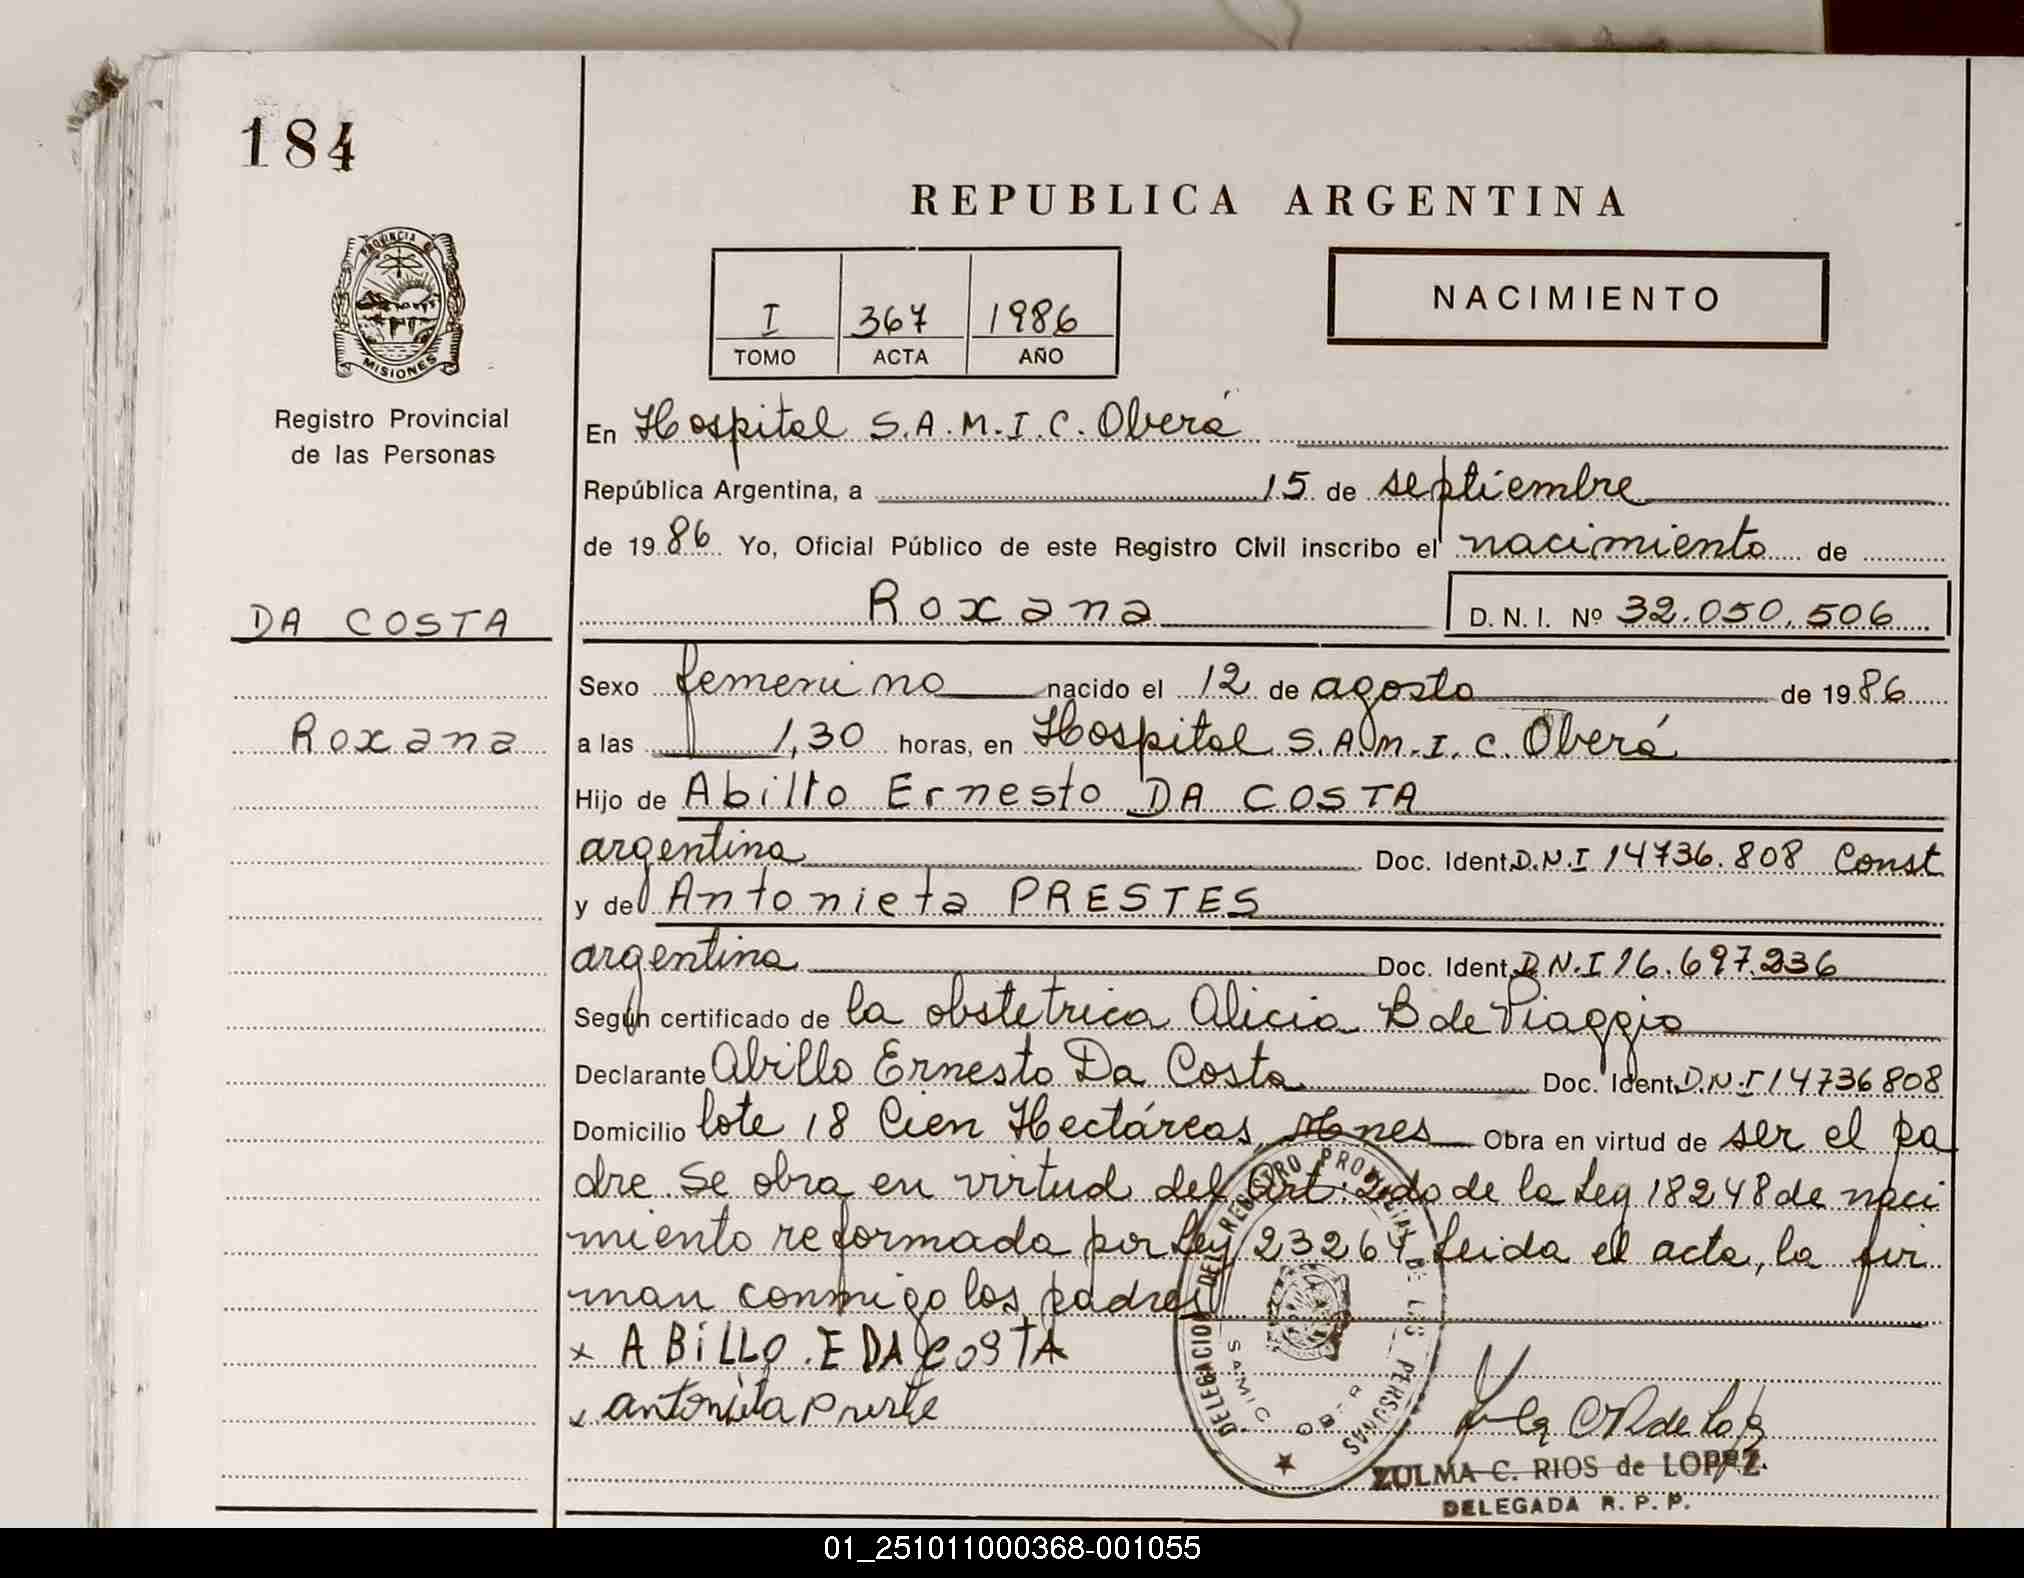 184
REPUBLICA ARGENTINA
PROVINCIA DE
MISIONES
Registro Provincial
de las Personas
I 367 1986
TOMO ACTA AÑO
NACIMIENTO
En Hospital S.A.M.I.C. Oberá
República Argentina, a 15 de septiembre
de 1986 Yo, Oficial Público de este Registro Civil inscribo el nacimiento de
DA COSTA
Roxana D.N.I. Nº 32.050.506
Sexo femenino nacido el 12 de agosto de 1986
Roxana
a las 1,30 horas, en Hospital S.A.M.I.C. Oberá
Hijo de Abilio Ernesto DA COSTA
argentina Doc. Ident. D.N.I 14736.808 Const
y de Antonieta PRESTES
argentina Doc. Ident. D.N.I 16.697.236
Según certificado de la obstetrica Alicia B de Piaggio
Declarante Abillo Ernesto Da Costa Doc. Ident. D.N.I 14736808
Domicilio lote 18 Cien Hectáreas, Mnes Obra en virtud de ser el pa
dre. Se obra en virtud del Art. 2do de la Ley 18248 de naci
miento reformada por Ley 23264 Leida el acta, la fir
man conmigo los padres
x ABiLLO.E DA COSTA
x antonieta
DELEGACION DEL REGISTRO PROVINCIAL DE LAS PERSONAS
SAMIC OBERA
ZULMA C. RIOS de LOPEZ
DELEGADA R.P.P.
01_251011000368-001055